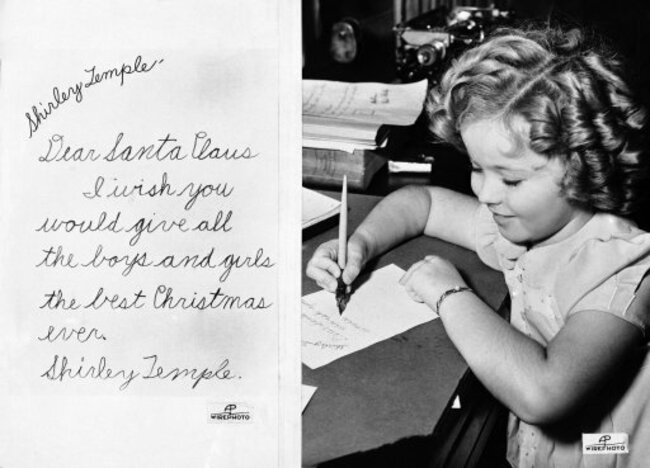 Shirley Temple-
Dear Santa Claus
I wish you
would give all
the boys and girls
the best Christmas
ever.
Shirley Temple.
AP
WIREPHOTO
AP
WIREPHOTO